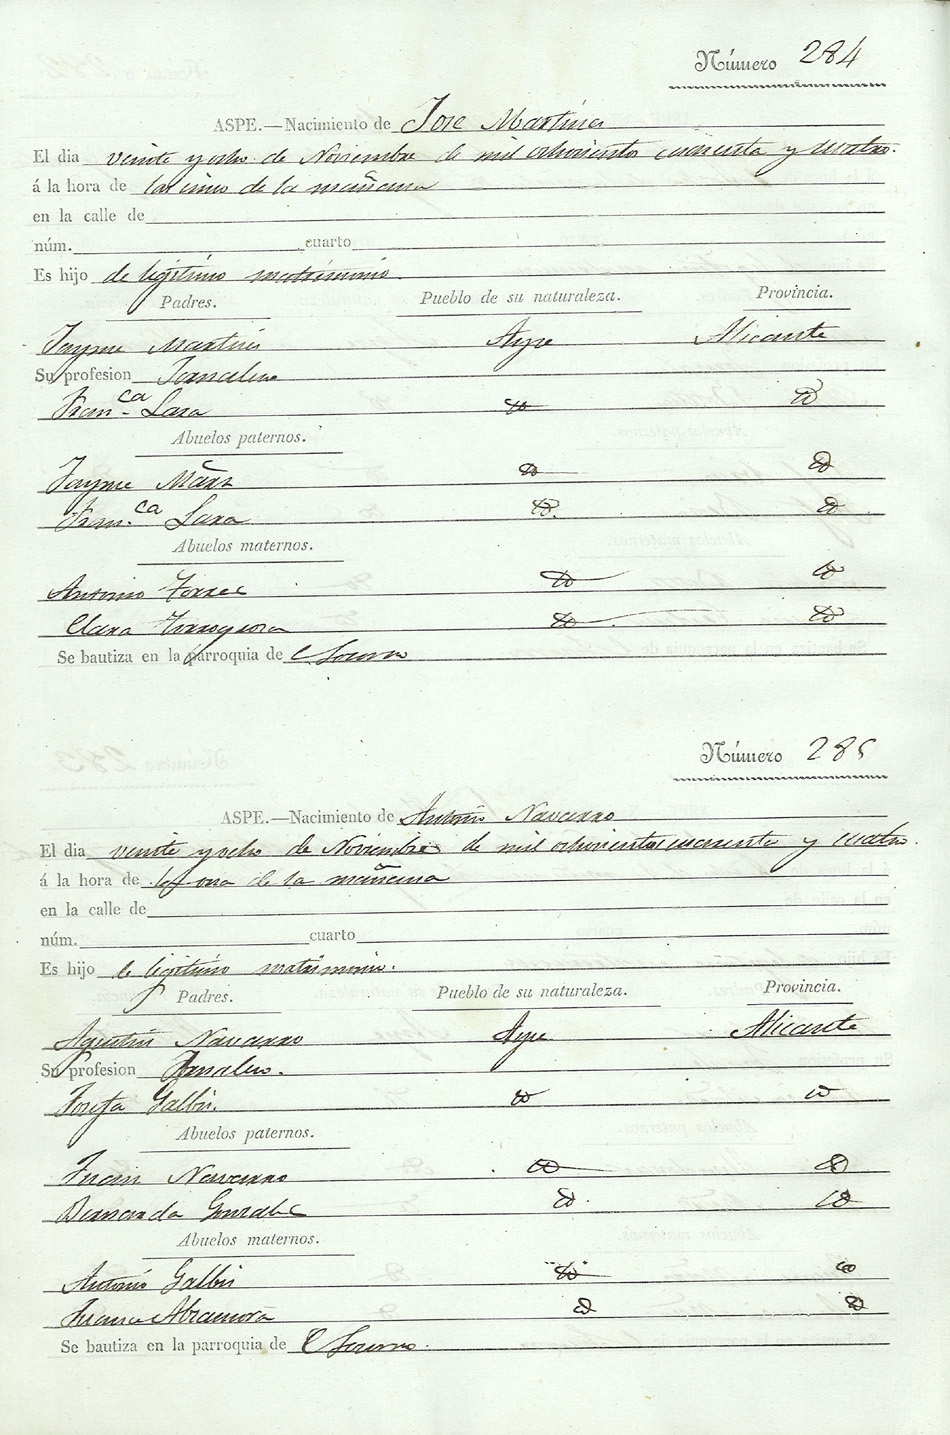 Número 284
ASPE.—Nacimiento de Jose Martinez
El dia veinte y ocho de Noviembre de mil ochocientos cuarenta y cuatro.
á la hora de las cinco de la mañana
en la calle de
núm. cuarto
Es hijo de legitimo matrimonio.
Padres. Pueblo de su naturaleza. Provincia.
Jayme Martines Aspe Alicante
Su profesion Jornalero
Fran.ca Lara
Abuelos paternos.
Jayme
Fran.ca Lara
Abuelos maternos.
Antonio Torres
Clara
Se bautiza en la parroquia de Socorro
Número 285
ASPE.—Nacimiento de Antonio Navarro
El dia veinte y ocho de Noviembre de mil ochocientos cuarenta y cuatro.
á la hora de la una de la mañana
en la calle de
núm. cuarto
Es hijo de legitimo matrimonio.
Padres. Pueblo de su naturaleza. Provincia.
Agustin Navarro Aspe Alicante
Su profesion Jornalero.
Josefa Galbis.
Abuelos paternos.
Juan Navarro
Bernarda Gonzalez
Abuelos maternos.
Antonio Galbis
Juana
Se bautiza en la parroquia de Socorro.